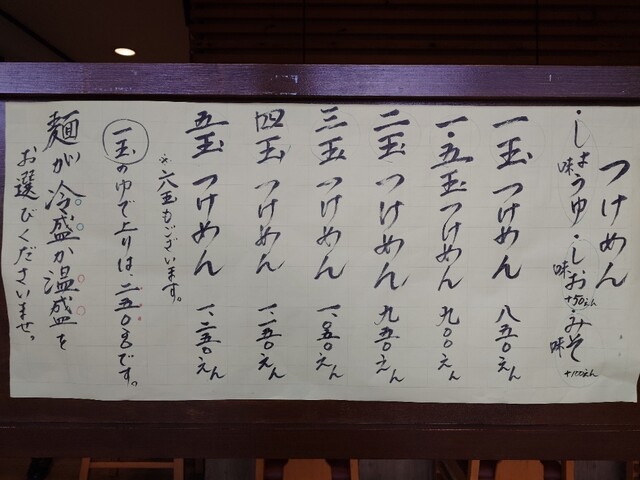 つけめん
・しょうゆ味・しお味+50えん・みそ味+100えん
一玉 つけめん 八五〇えん
一・五玉 つけめん 九〇〇えん
二玉 つけめん 九五〇えん
三玉 つけめん 一、〇五〇えん
四玉 つけめん 一、一五〇えん
五玉 つけめん 一、二五〇えん
※六玉もございます。
一玉のゆで上りは、二五〇gです。
麺が冷盛か温盛を
お選びくださいませ。